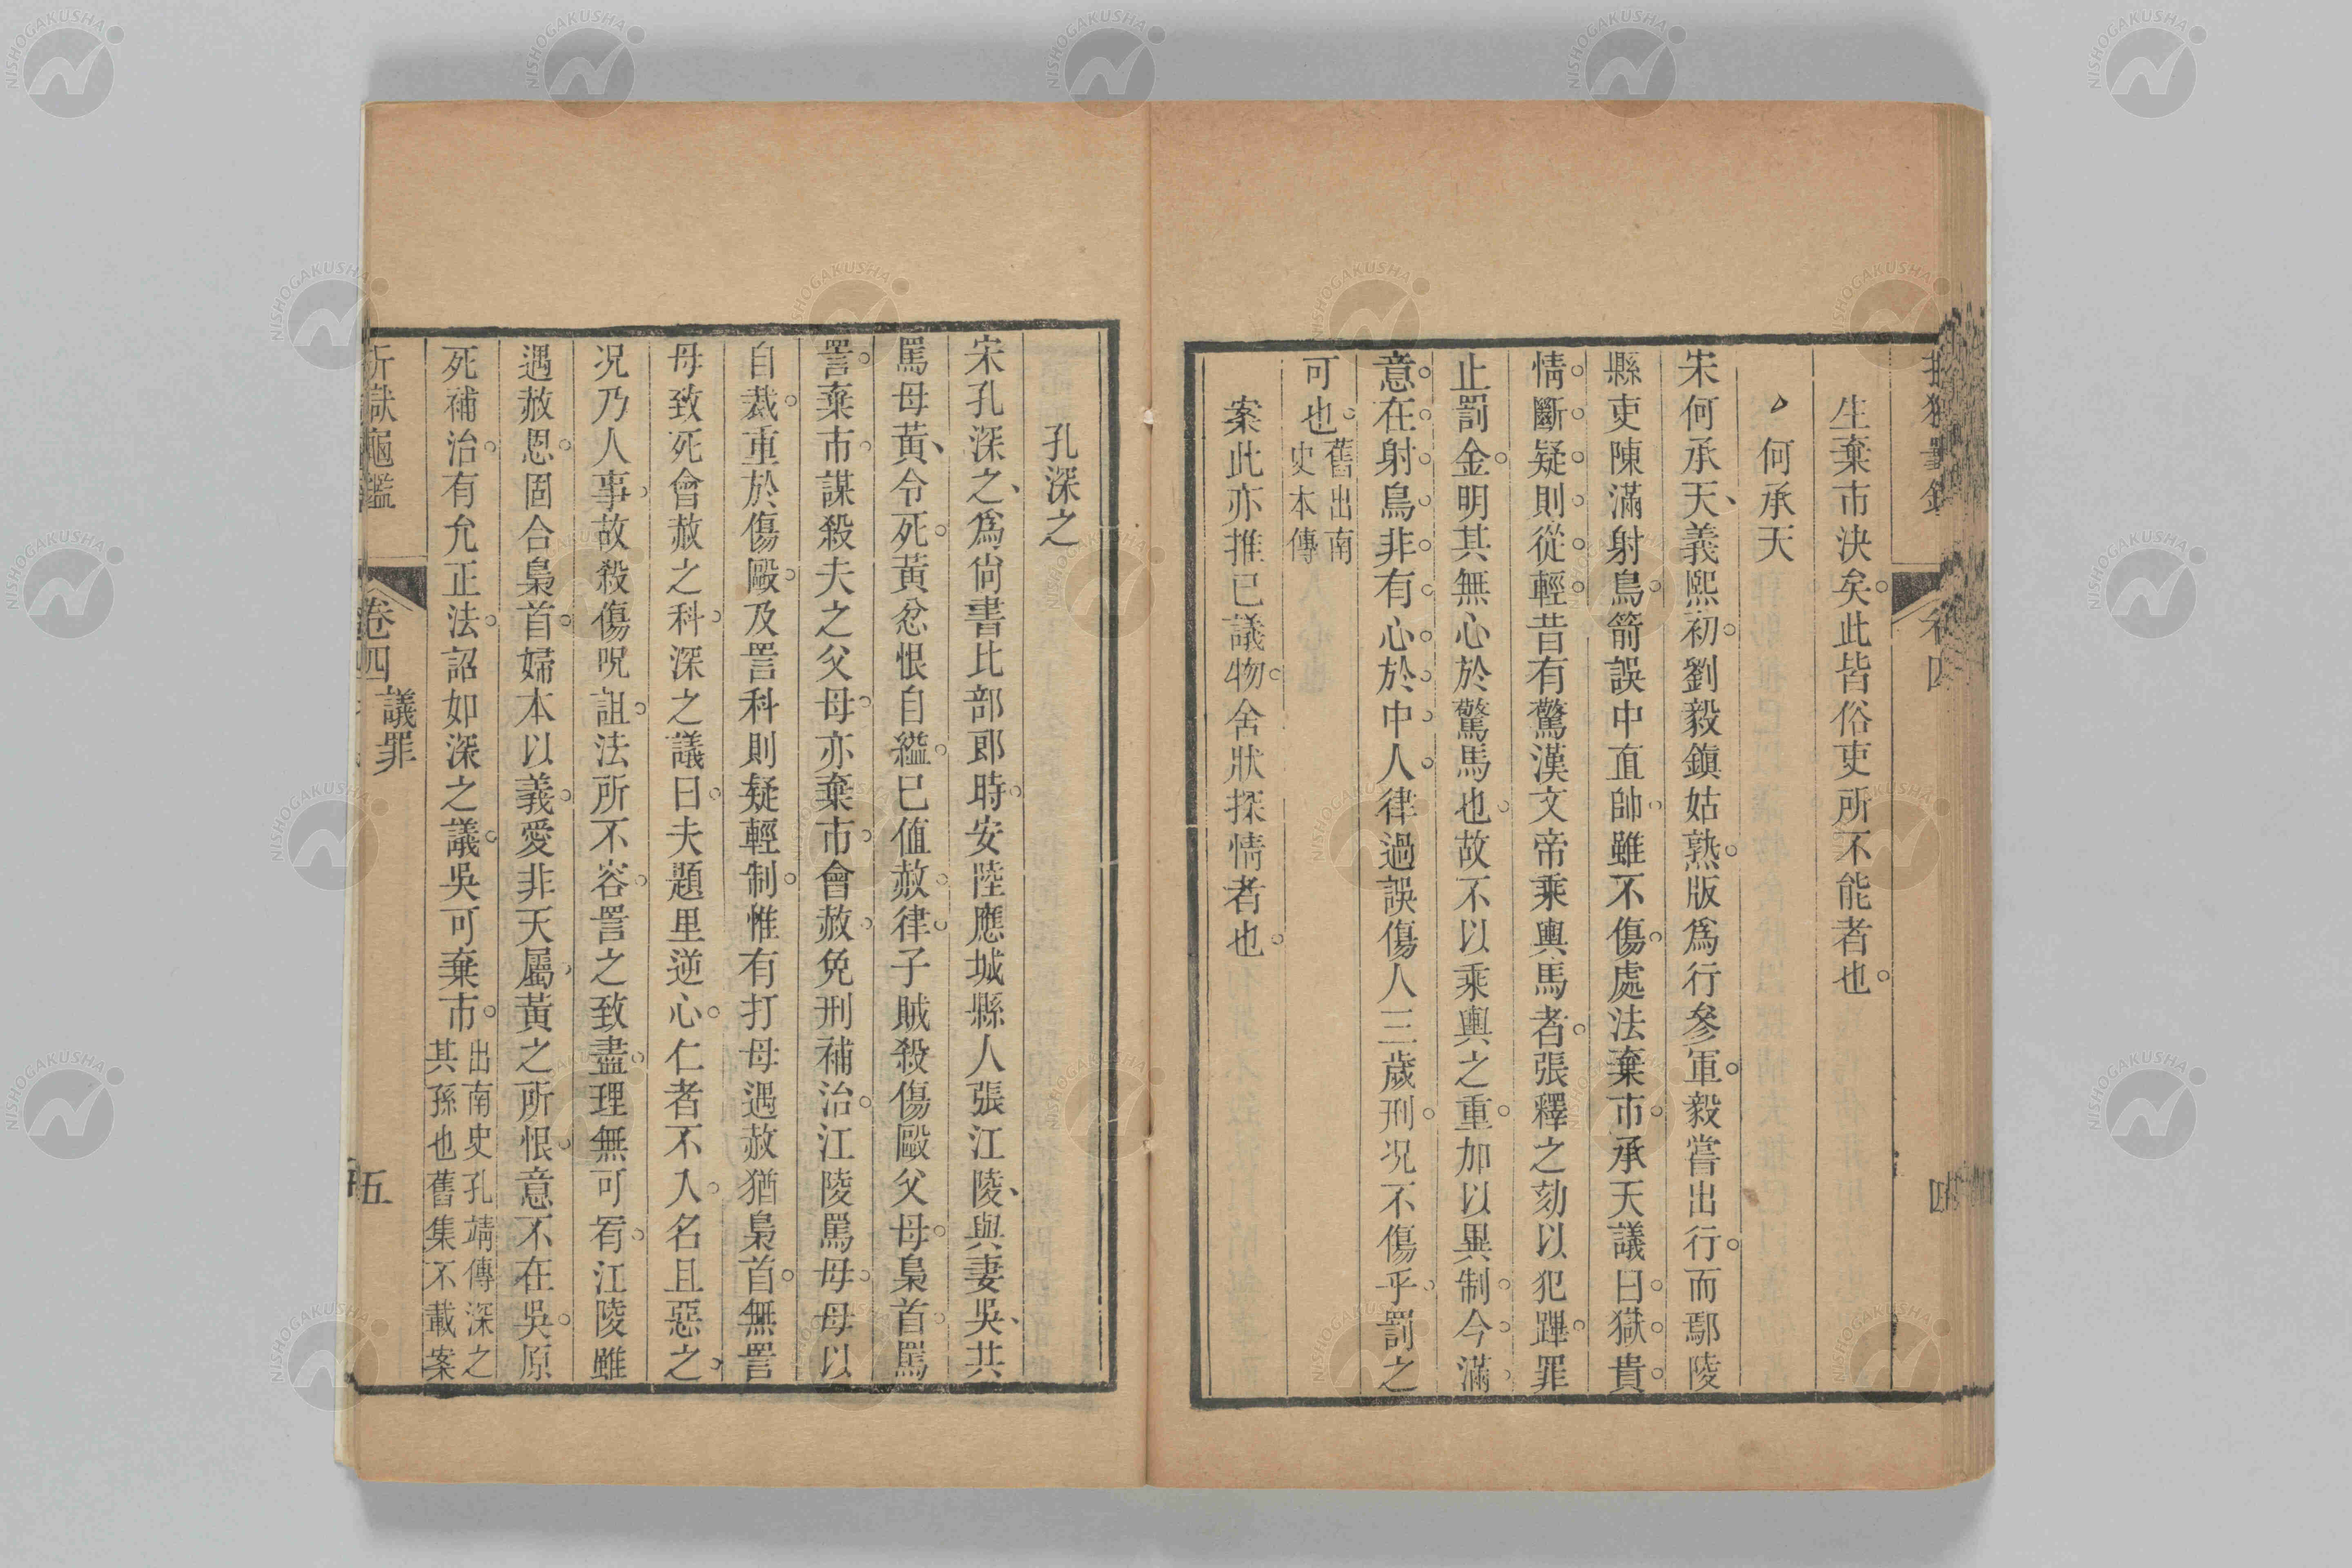 生棄市決矣此皆俗吏所不能者也
何承天
宋何承天義熙初劉毅鎭姑熟版爲行參軍毅嘗出行而鄢陵
縣吏陳滿射鳥箭誤中直帥雖不傷處法棄市承天議曰獄貴
情斷疑則從輕昔有驚漢文帝乘輿馬者張釋之劾以犯蹕罪
止罰金明其無心於驚馬也故不以乘輿之重加以異制今滿
意在射鳥非有心於中人律過誤傷人三歲刑况不傷乎罰之
可也舊出南史本傳
案此亦推已議物舍狀探情者也
孔深之
宋孔深之爲尙書比部郎時安陸應城縣人張江陵與妻吳共
罵母黃令死黃忿恨自縊已值赦律子賊殺傷毆父母梟首罵
詈棄市謀殺夫之父母亦棄市會赦免刑補治江陵罵母母以
自裁重於傷毆及詈科則疑輕制惟有打母遇赦猶梟首無詈
母致死會赦之科深之議曰夫題里逆心仁者不入名且惡之
况乃人事故殺傷呪詛法所不容詈之致盡理無可宥江陵雖
遇赦恩固合梟首婦本以義愛非天屬黃之所恨意不在吳原
死補治有允正法詔如深之議吳可棄市出南史孔靖傳深之其孫也舊集不載案
折獄龜鑑
卷四
議罪
五
NISHOGAKUSHA